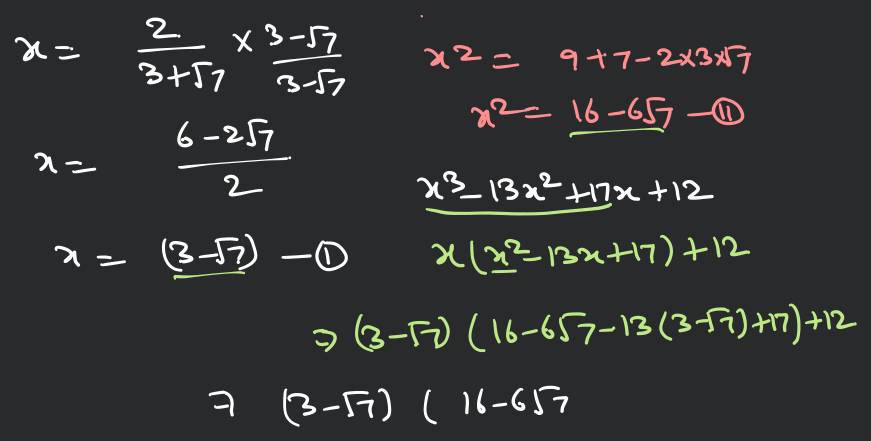 x = 2/(3+√7) × (3-√7)/(3-√7)
x = (6-2√7)/2
x = (3-√7) — ①
x2 = 9+7-2×3×√7
x² = 16-6√7 — ⑪
x³-13x²+17x+12
x(x²-13x+17)+12
⇒ (3-√7) (16-6√7-13(3-√7)+17)+12
⇒ (3-√7) ( 16-6√7